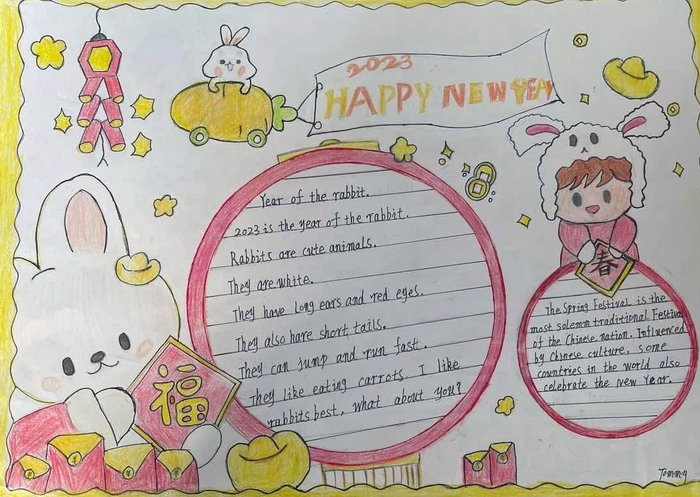 2023
HAPPY NEW YEAR
Year of the rabbit.
2023 is the year of the rabbit.
Rabbits are cute animals.
They are white.
They have long ears and red eyes.
They also have short tails.
They can jump and run fast.
They like eating carrots. I like
rabbits best, what about you?
春
The Spring Festival is the
most solemn traditional Festival
of the Chinese nation. Influenced
by Chinese culture, some
countries in the world also
celebrate the New Year.
福
¥
¥
¥
¥